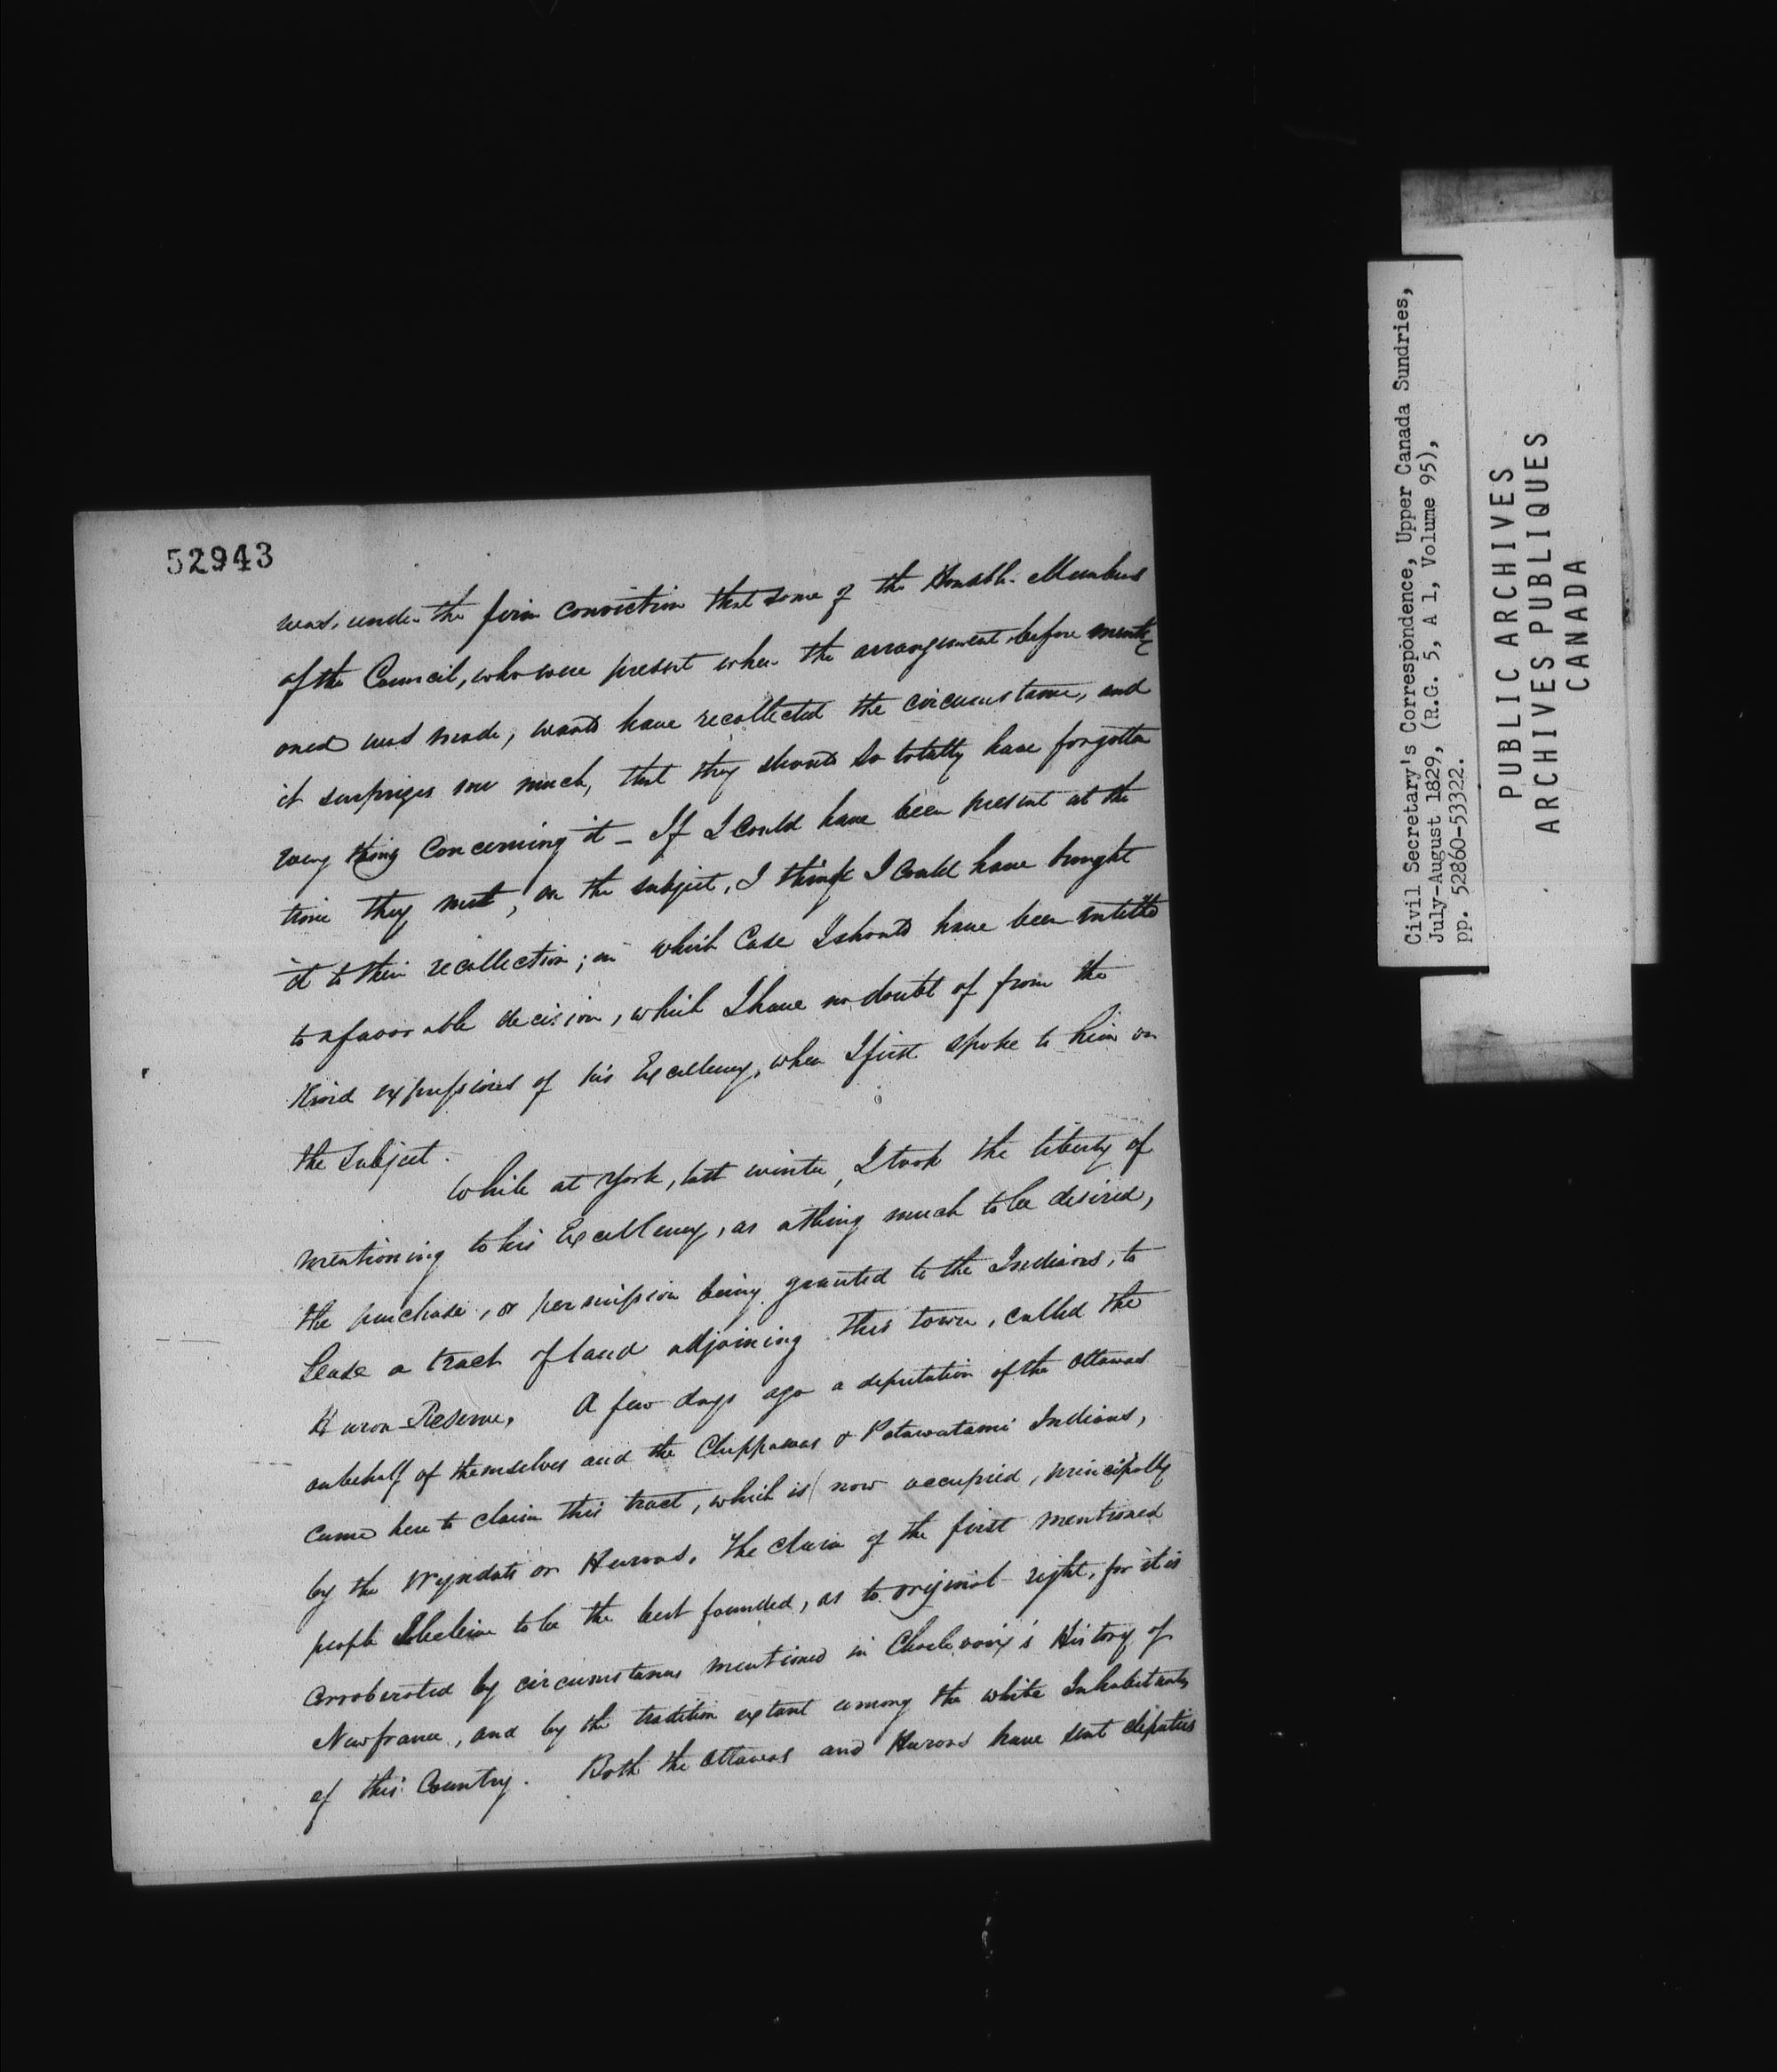 52943
was, under the firm conviction that some of the Honobl. Members
of the Council, who were present when the arrangement before menti-
oned was made, would have recollected the circumstance, and
it surprizes me much, that they should so totally have forgotten
every thing concerning it – If I could have been present at the
time they met, on the subject, I think I could have brought
it to their recollection; in which Case I should have been entitled
to a favorable decision, which I have no doubt of from the
Kind expressions of his Excellency, when I first spoke to him on
the Subject.
While at York, last winter, I took the liberty of
mentioning to his Excellency, as a thing much to be desired,
the purchase, or permission being granted to the Indians, to
Lease a tract of land adjoining this town, called the
Huron Reserve. A few days ago a deputation of the Ottawas
on behalf of themselves and the Chippawas & Patawatami Indians,
came here to claim this tract, which is now occupied, principally
by the Wyndats or Hurons. The claim of the first mentioned
people I believe to be the best founded, as to original right, for it is
corroberated by circumstances mentioned in Charlevoix's History of
Newfrance, and by the tradition extant among the white Inhabitants
of this Country. Both the Ottawas and Hurons have sent deputies
Civil Secretary's Correspondence, Upper Canada Sundries,
July-August 1829, (R.G. 5, A 1, Volume 95),
pp. 52860-53322.
PUBLIC ARCHIVES
ARCHIVES PUBLIQUES
CANADA